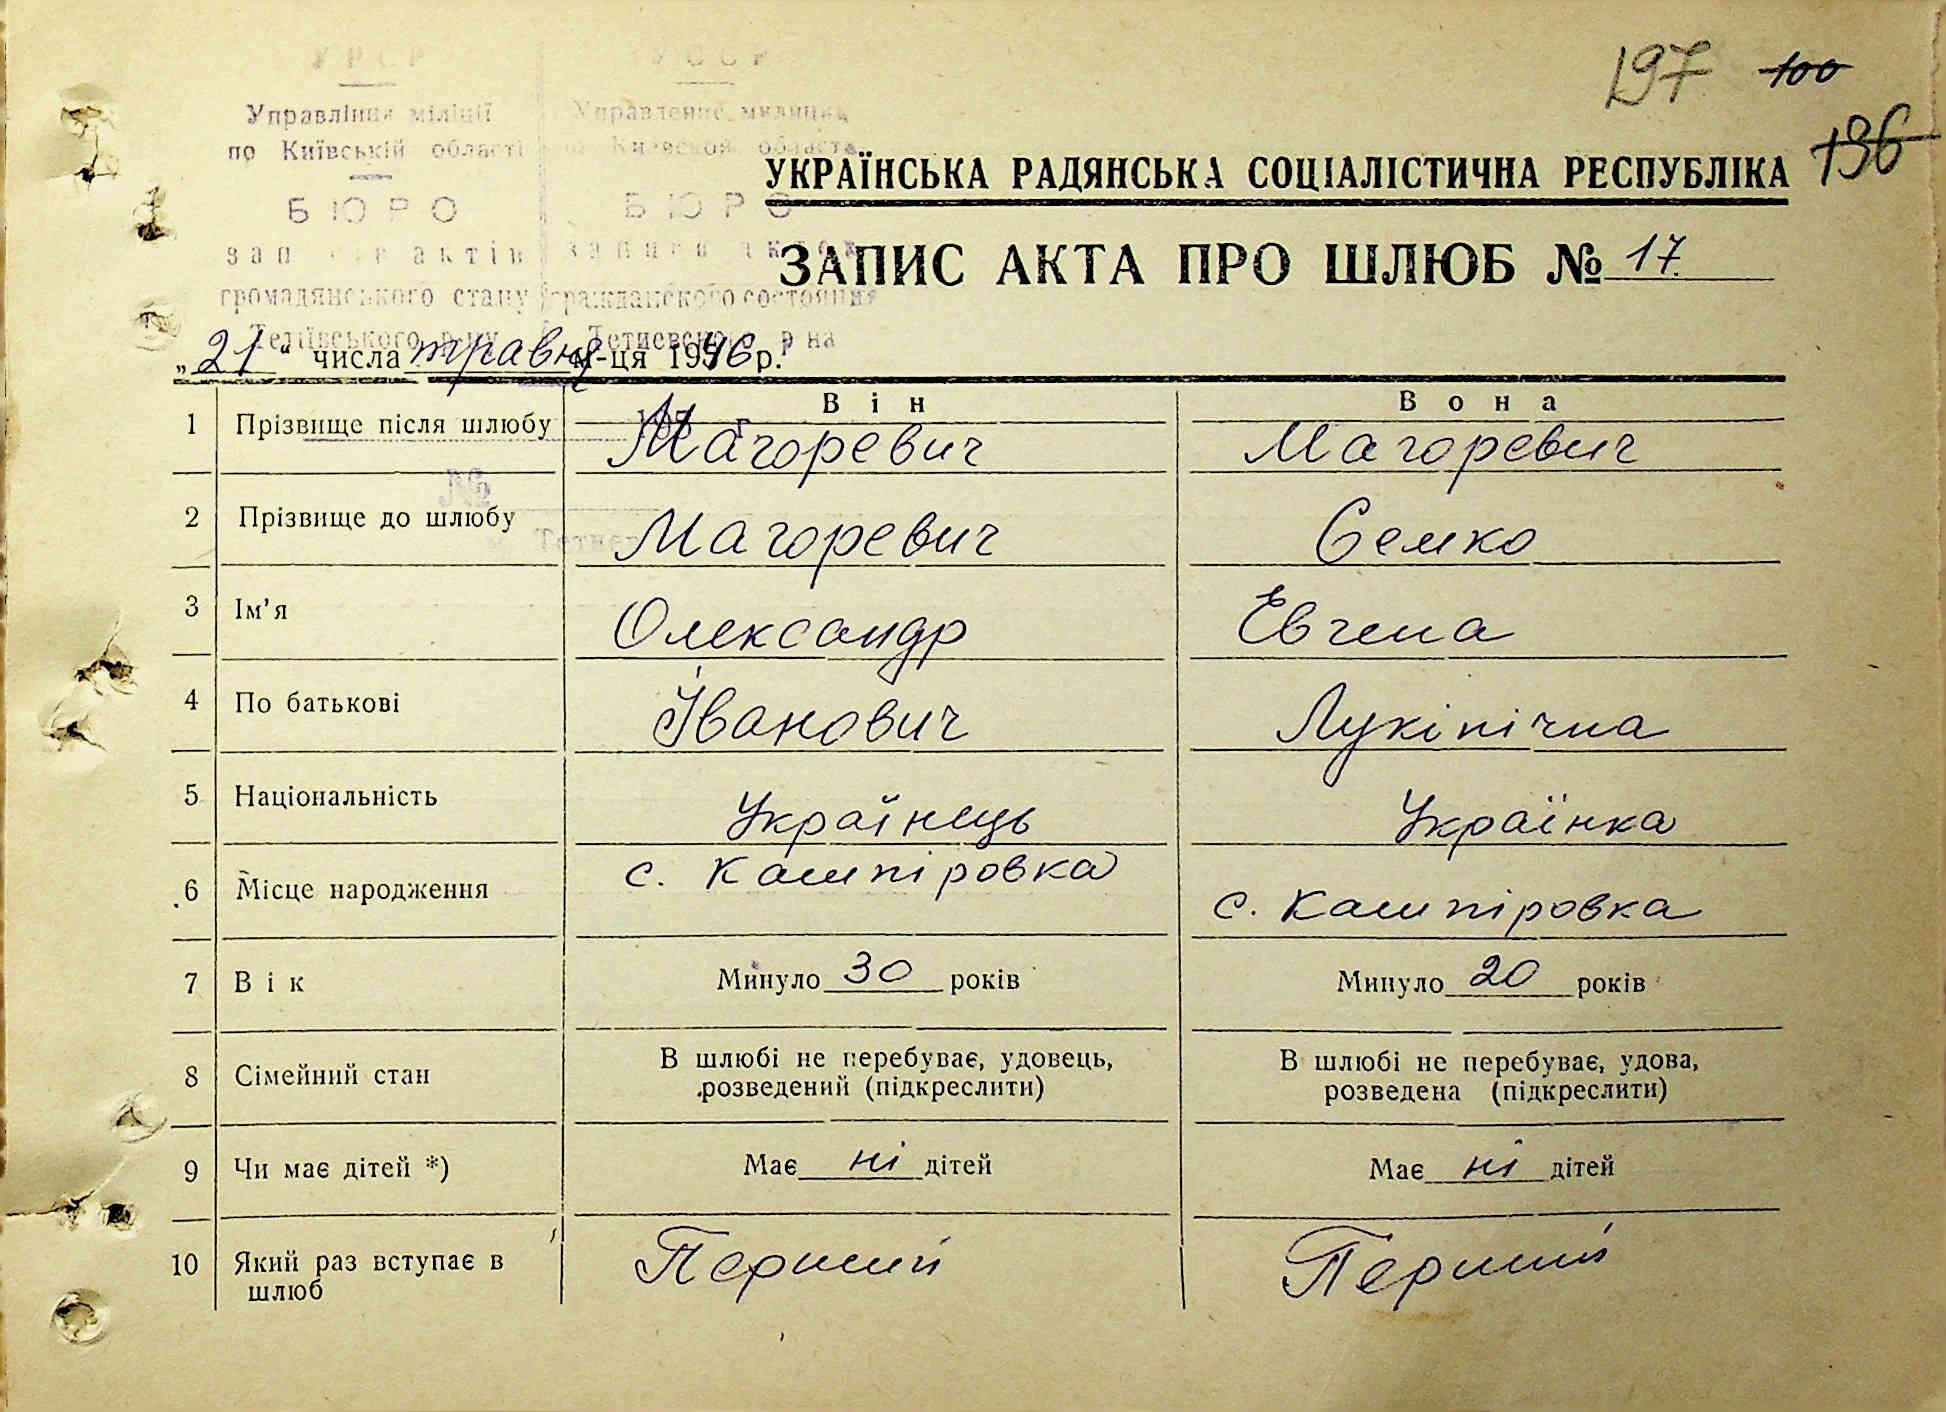 197 100
136
У Р С Р
У С С Р
Управління міліції
по Київській області
Управление милиции
Киевской области
БЮРО
БЮРО
записів актів
записи актов
громадянського стану
гражданского состояния
Тетіївського р-ну
Тетиевского р-на
№
УКРАЇНСЬКА РАДЯНСЬКА СОЦІАЛІСТИЧНА РЕСПУБЛІКА
ЗАПИС АКТА ПРО ШЛЮБ № 17.
„21“ числа травня м-ця 1946 р.
Він Вона
1 Прізвище після шлюбу Магоревич Магоревич
2 Прізвище до шлюбу Магоревич Семко
3 Ім’я Олександр Евгена
4 По батькові Іванович Лукінічна
5 Національність Українець Українка
6 Місце народження с. Кашпіровка с. Кашпіровка
7 Вік Минуло 30 років Минуло 20 років
8 Сімейний стан В шлюбі не перебуває, удовець, В шлюбі не перебуває, удова,
розведений (підкреслити) розведена (підкреслити)
9 Чи має дітей *) Має ні дітей Має ні дітей
10 Який раз вступає в Перший Перший
шлюб